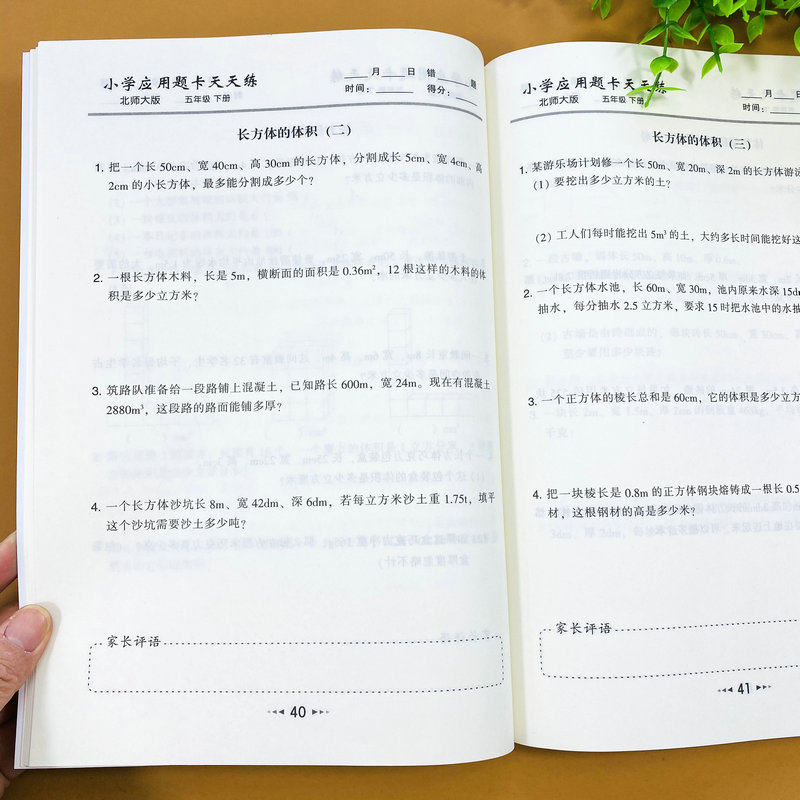 小学应用题卡天天练
北师大版 五年级 下册
月 日 错 题
时间： 得分：
长方体的体积（二）
1. 把一个长 50cm、宽 40cm、高 30cm 的长方体，分割成长 5cm、宽 4cm、高
2cm 的小长方体，最多能分割成多少个？
2. 一根长方体木料，长是 5m，横断面的面积是 0.36m²，12 根这样的木料的体
积是多少立方米？
3. 筑路队准备给一段路铺上混凝土，已知路长 600m，宽 24m。现在有混凝土
2880m³，这段路的路面能铺多厚？
4. 一个长方体沙坑长 8m、宽 42dm、深 6dm，若每立方米沙土重 1.75t，填平
这个沙坑需要沙土多少吨？
家长评语
40
小学应用题卡天天练
北师大版 五年级 下册
月 日
时间：
长方体的体积（三）
1. 某游乐场计划修一个长 50m、宽 20m、深 2m 的长方体游泳
（1）要挖出多少立方米的土？
（2）工人们每时能挖出 5m³ 的土，大约多长时间能挖好这
2. 一个长方体水池，长 60m、宽 30m，池内原来水深 15dm
抽水，每分抽水 2.5 立方米，要求 15 时把水池中的水抽
3. 一个正方体的棱长总和是 60cm，它的体积是多少立方
4. 把一块棱长是 0.8m 的正方体钢块熔铸成一根长 0.5
材，这根钢材的高是多少米？
家长评语
41